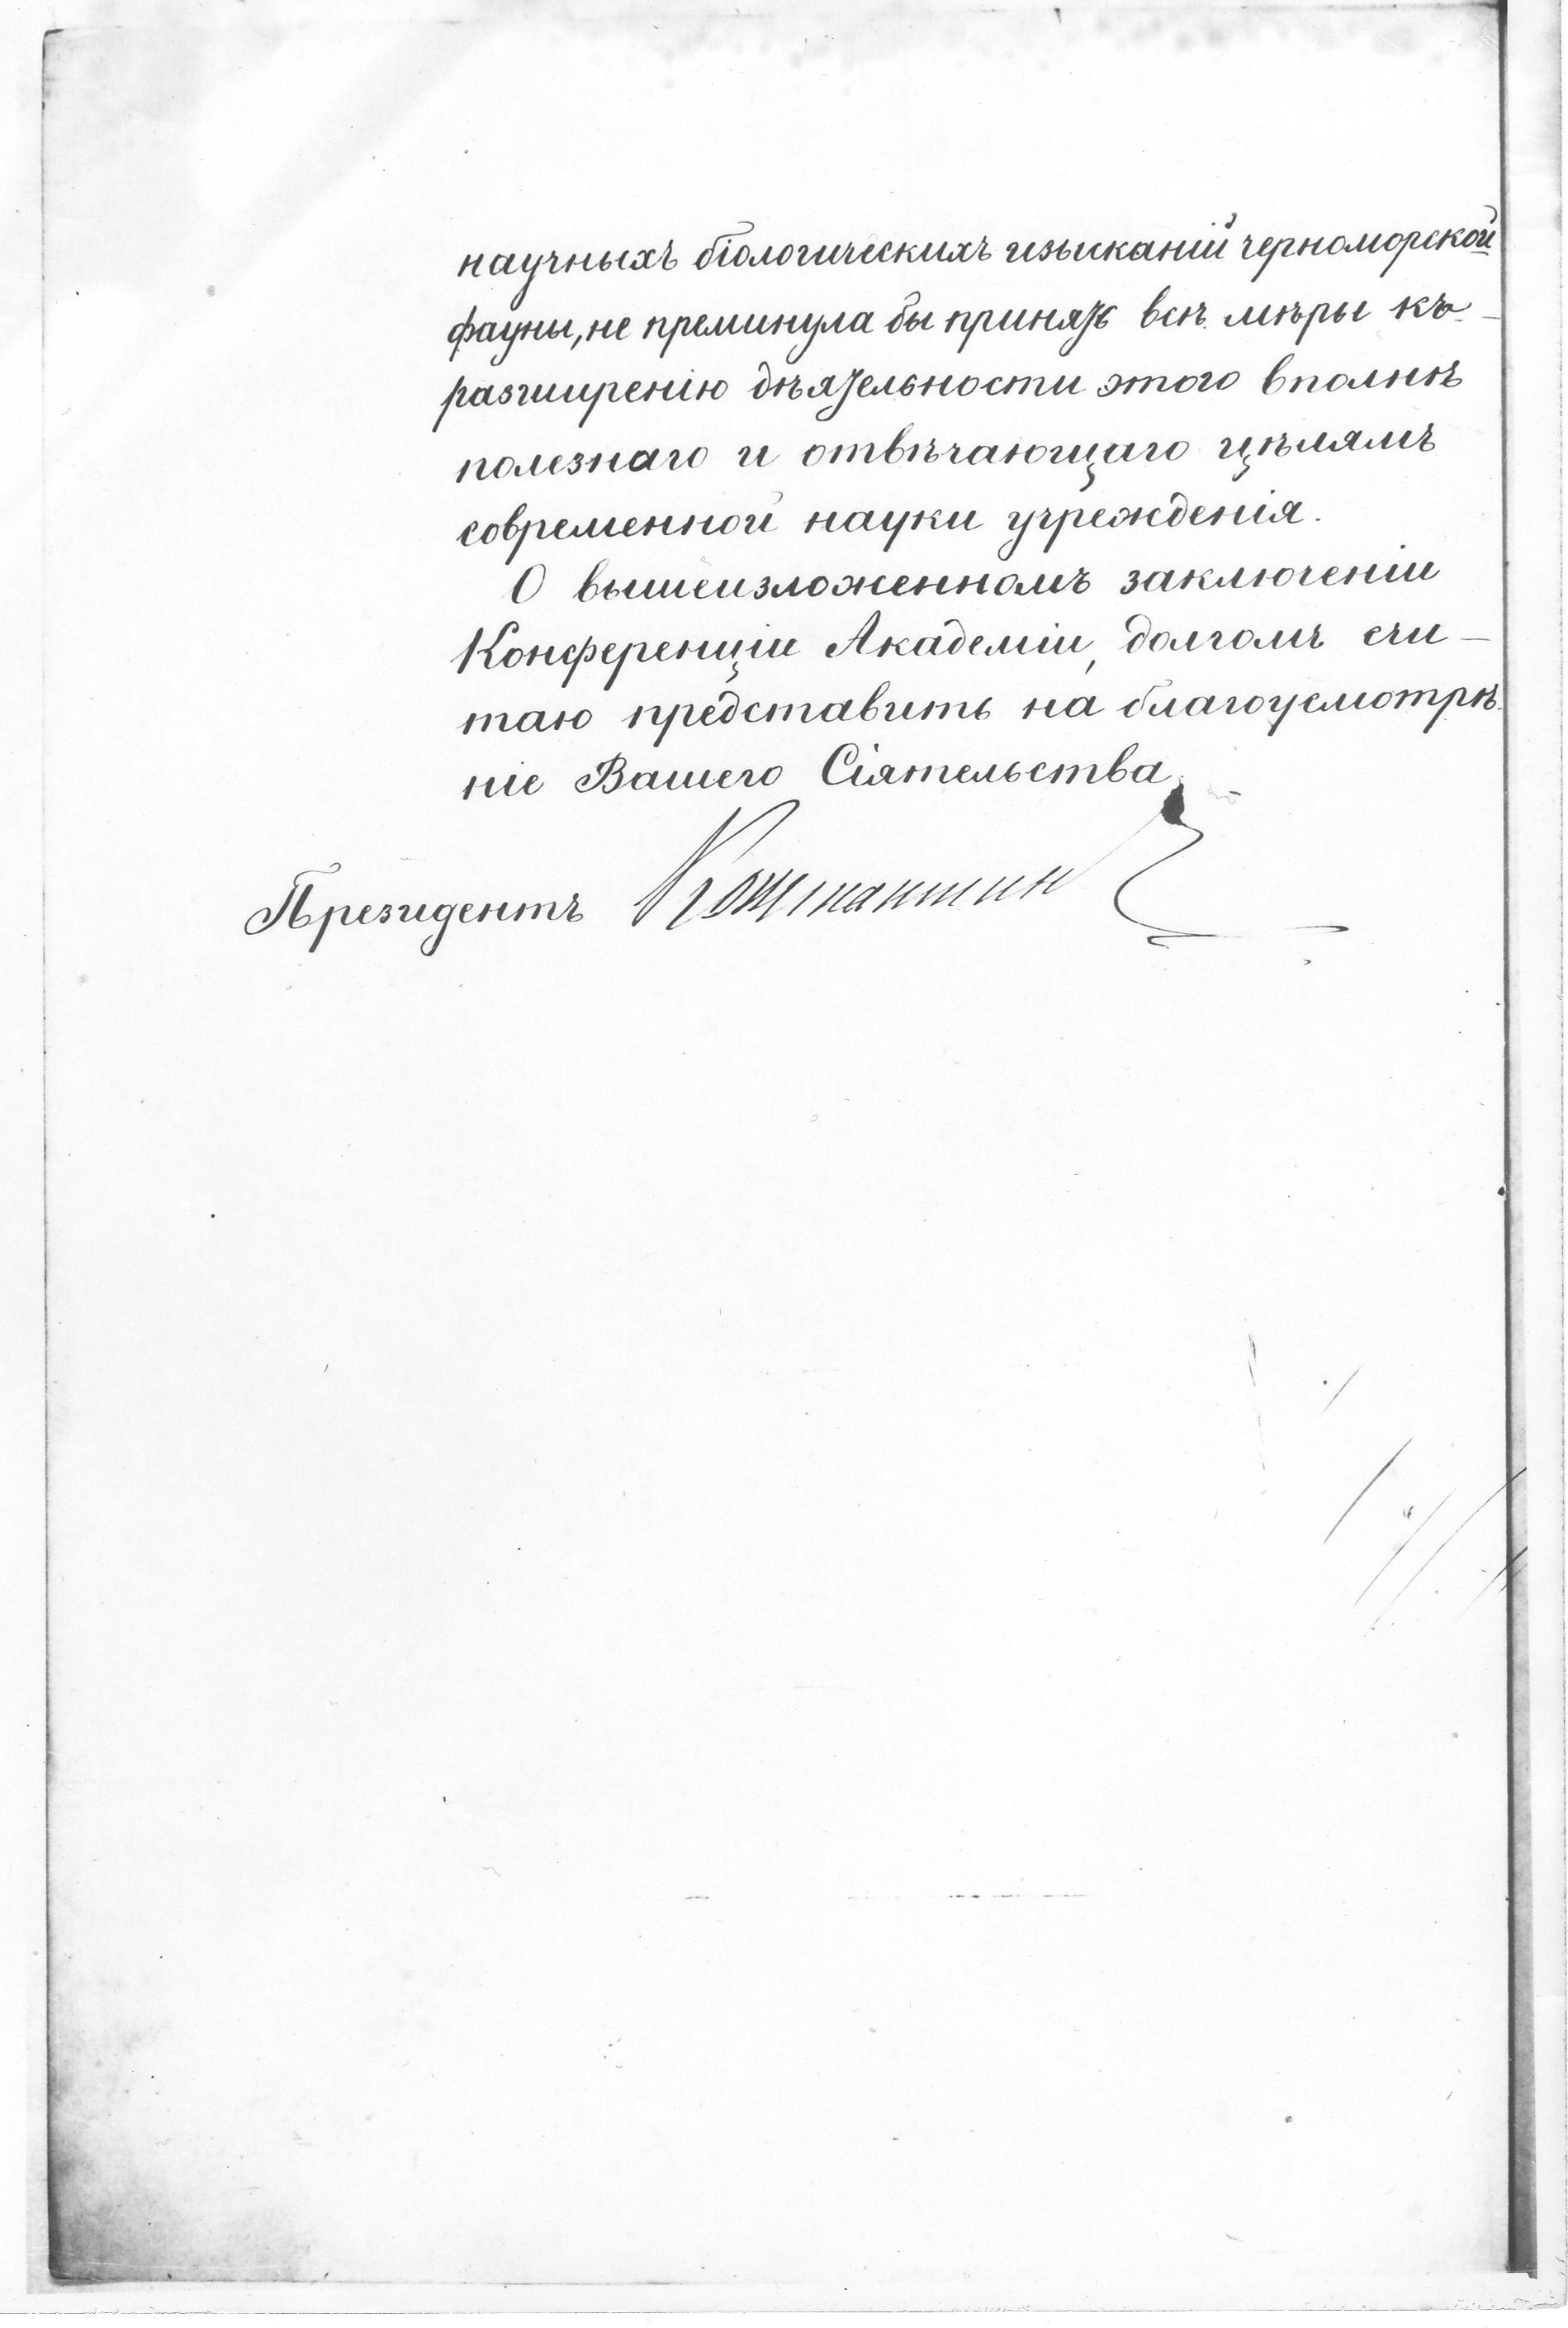 научныхъ біологическихъ изысканій черноморской
фауны, не преминула бы принять всѣ мѣры къ
разширенію дѣятельности этого вполнѣ
полезнаго и отвѣчающаго цѣлямъ
современной науки учрежденія.
О вышеизложенномъ заключеніи
Конференціи Академіи, долгомъ счи-
таю представить на благоусмотрѣ-
ніе Вашего Сіятельства.
Президентъ Константин